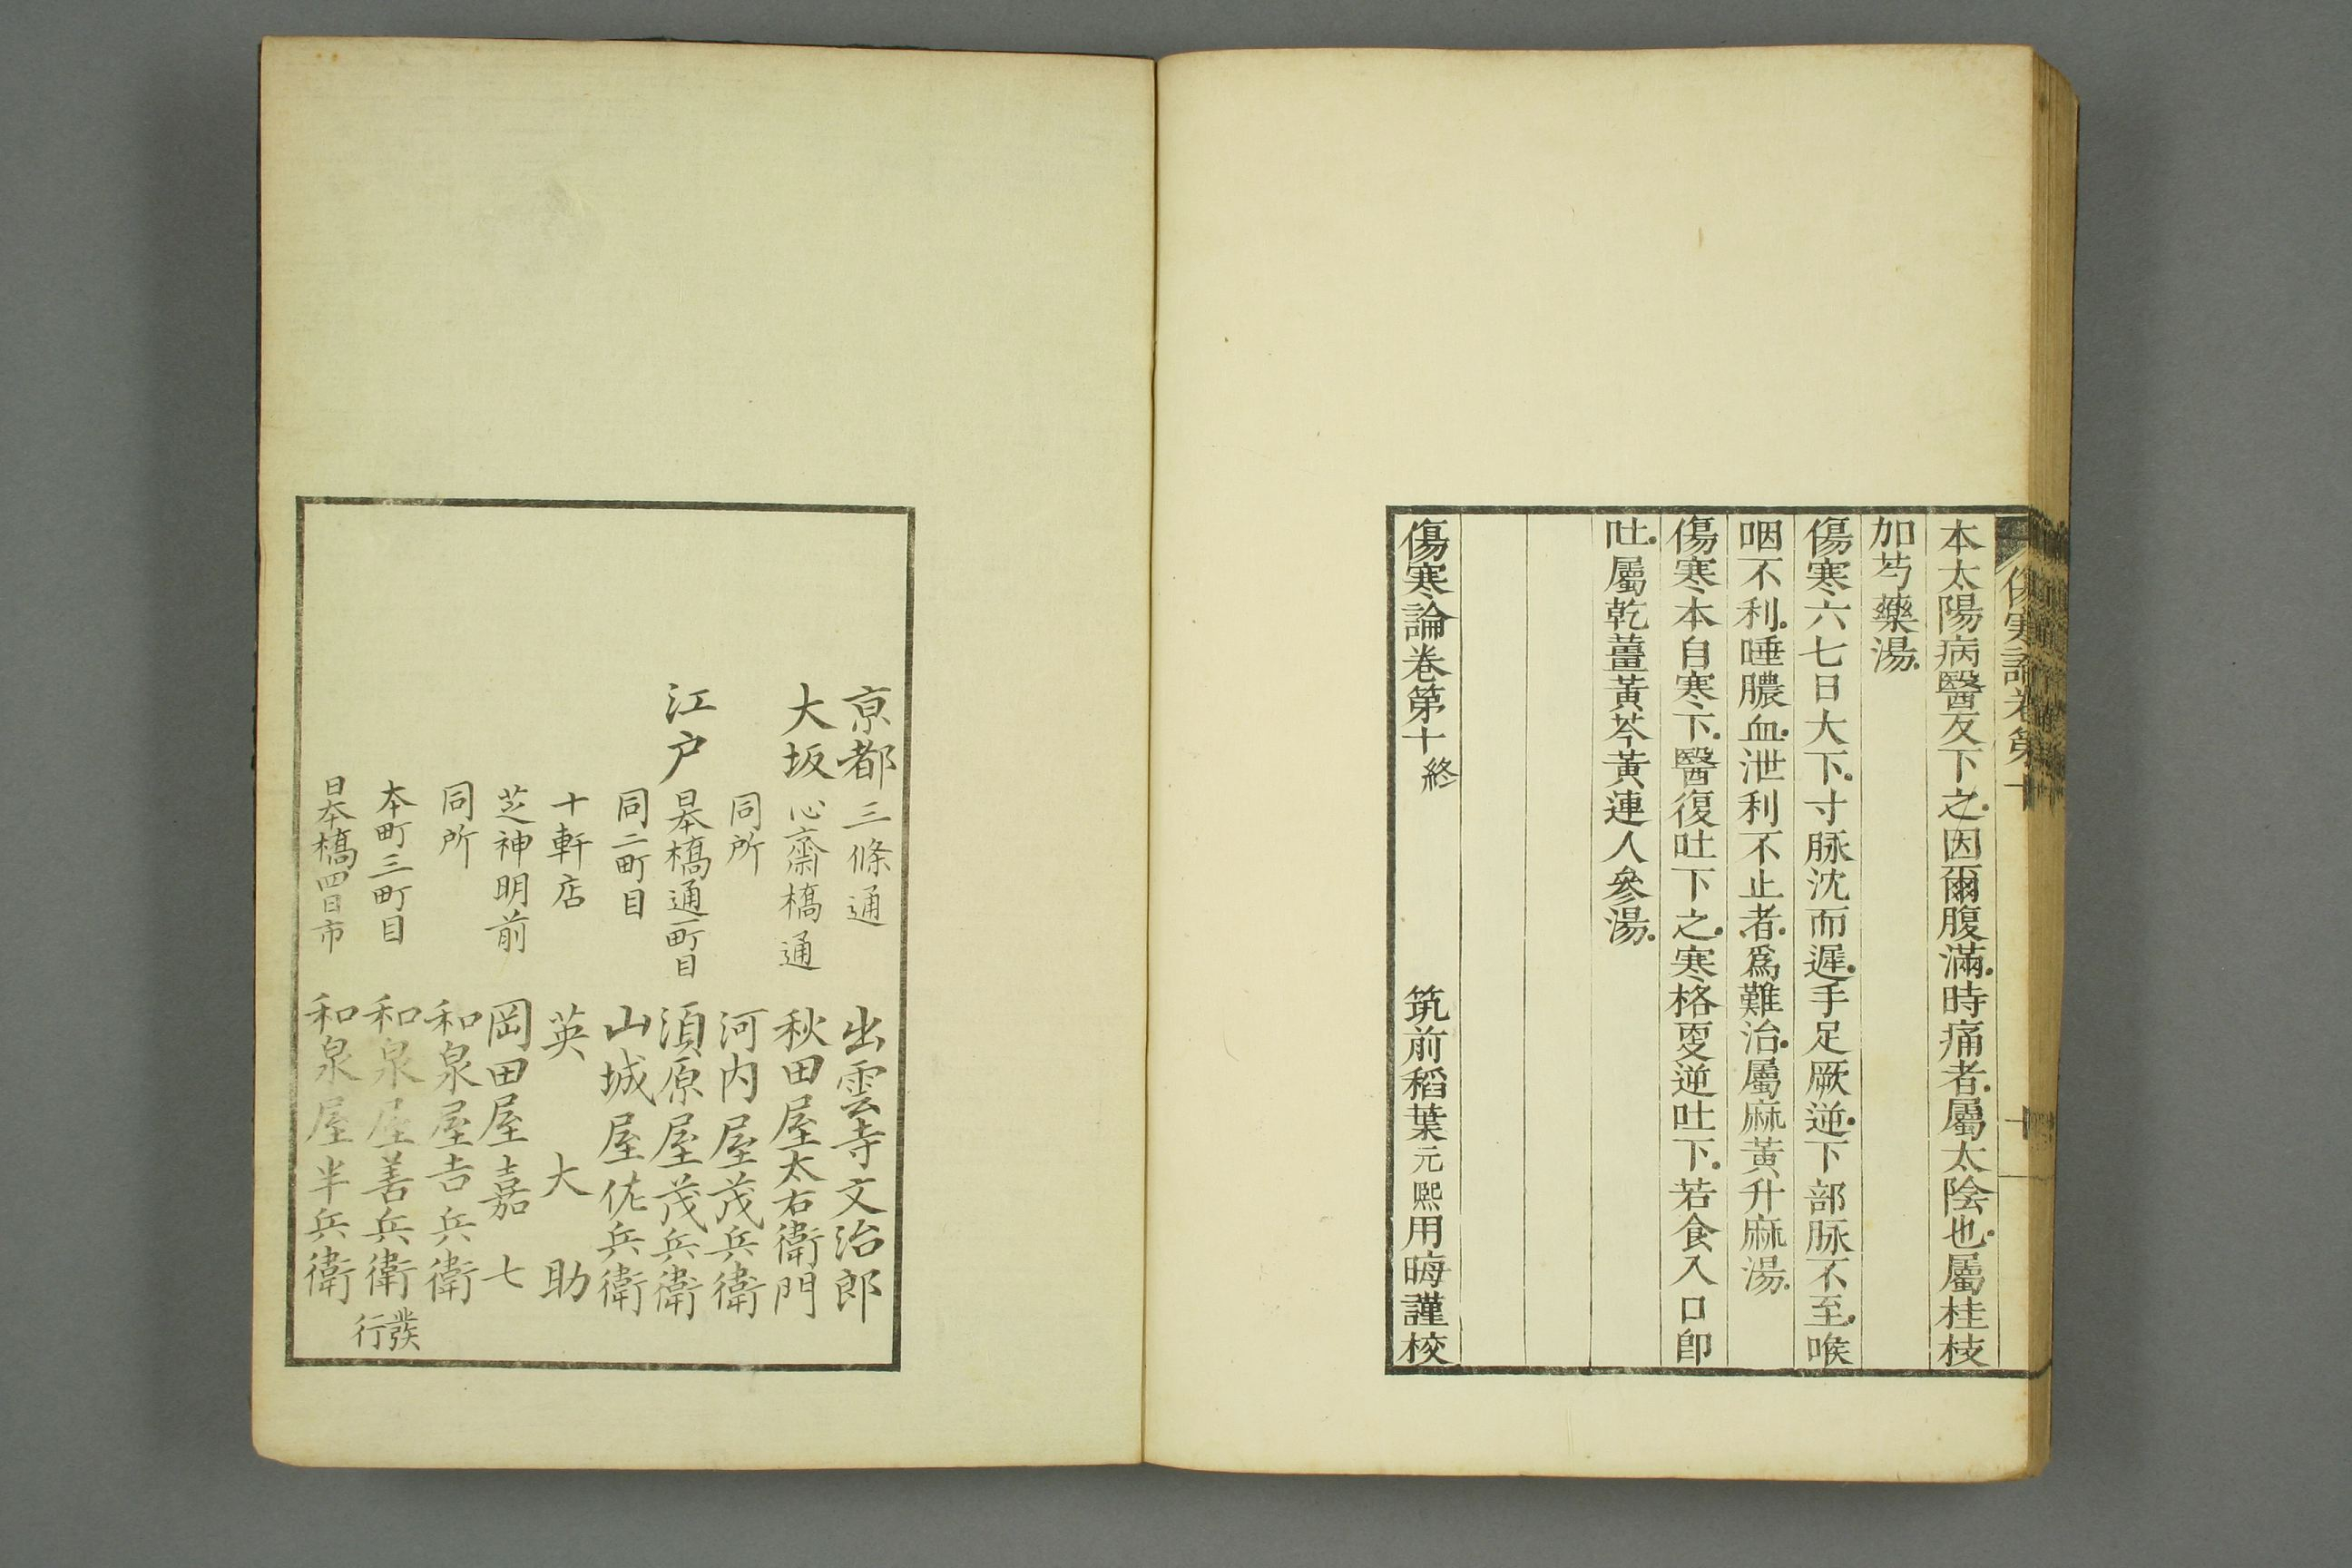 傷寒論卷第十
十
本太陽病醫反下之。因爾腹滿。時痛者。屬太陰也。屬桂枝
加芍藥湯。
傷寒六七日大下。寸脉沈而遲。手足厥逆。下部脉不至。喉
咽不利。唾膿血。泄利不止者。爲難治。屬麻黃升麻湯。
傷寒本自寒下。醫復吐下之。寒格更逆吐下。若食入口卽
吐。屬乾薑黃芩黃連人參湯。
傷寒論卷第十終 筑前稻葉元熙用晦謹校
京都三條通 出雲寺文治郎
大坂心齋橋通 秋田屋太右衛門
同所 河内屋茂兵衛
江戸日本橋通一町目 須原屋茂兵衛
同二町目 山城屋佐兵衛
十軒店 英大助
芝神明前 岡田屋嘉七
同所 和泉屋吉兵衛
本町三町目 和泉屋善兵衛
日本橋四日市 和泉屋半兵衛
發行